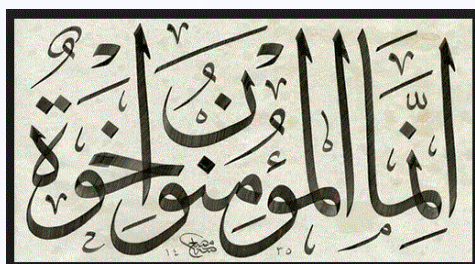 إِنَّمَا الْمُؤْمِنُونَ إِخْوَةٌ